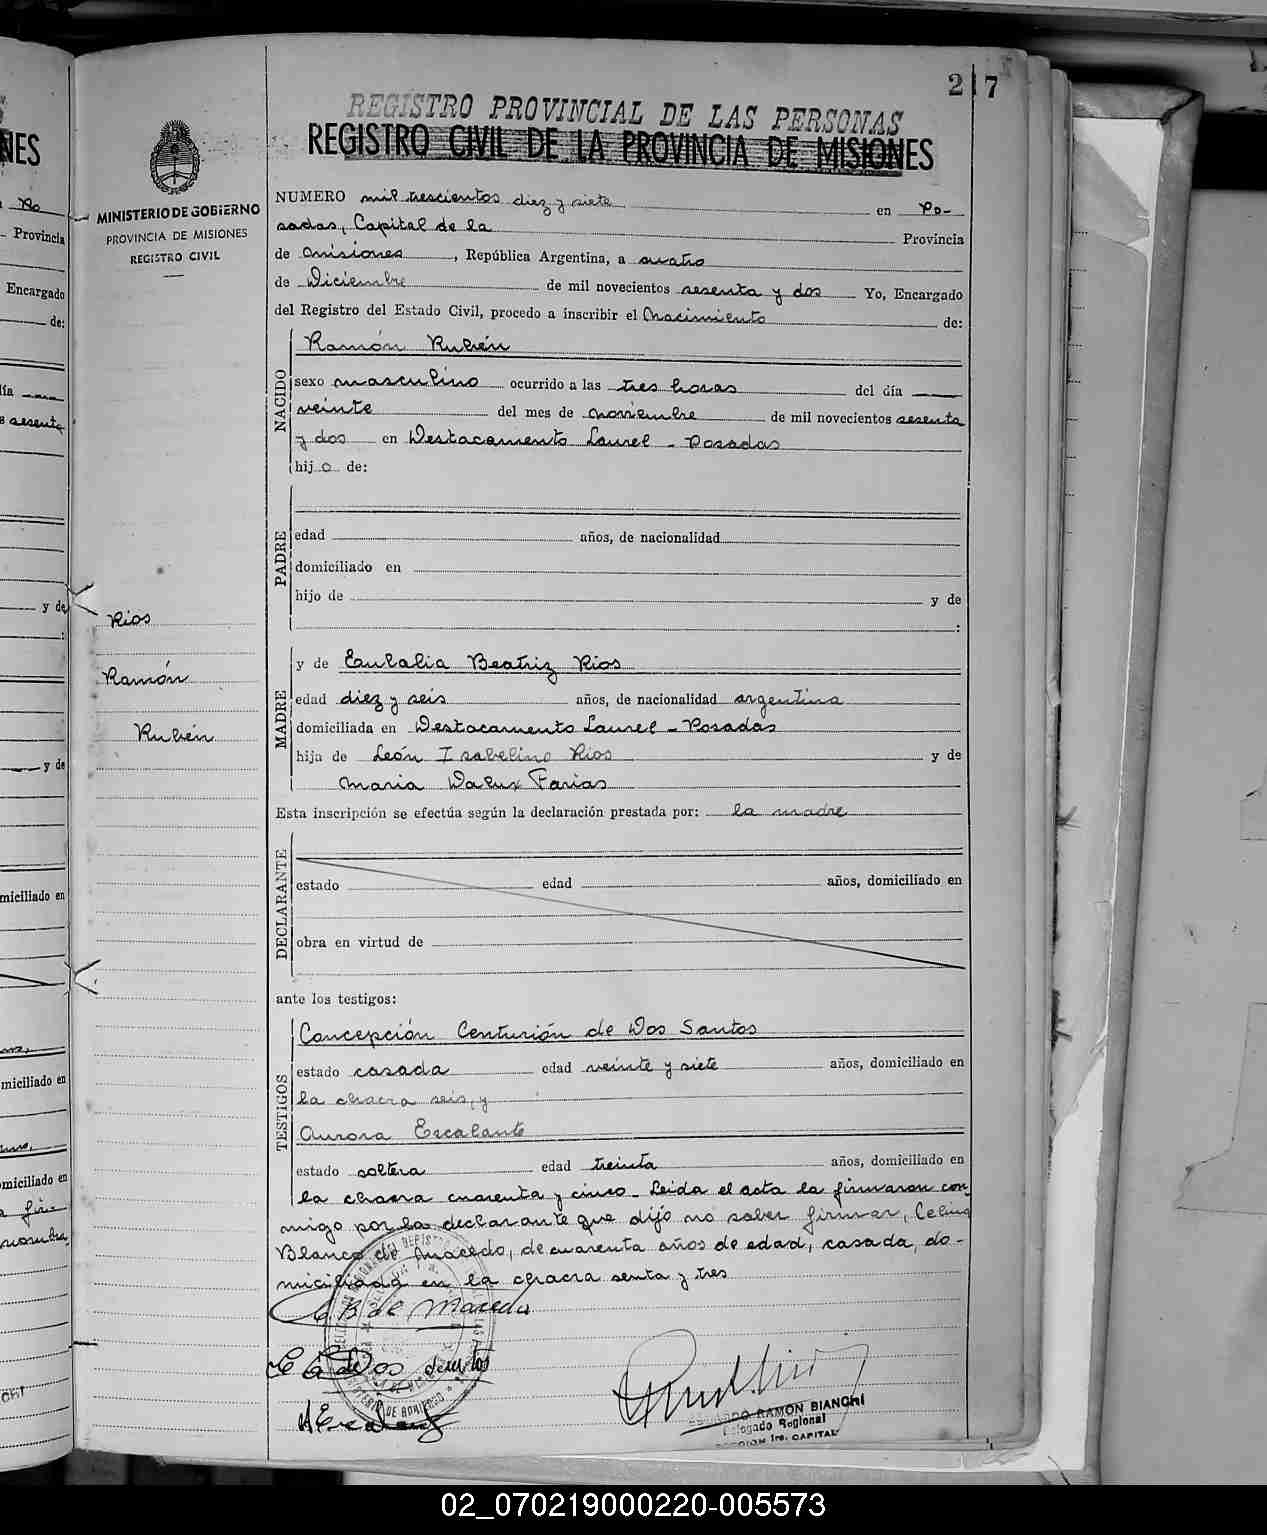 217
REGISTRO PROVINCIAL DE LAS PERSONAS
REGISTRO CIVIL DE LA PROVINCIA DE MISIONES
MINISTERIO DE GOBIERNO
PROVINCIA DE MISIONES
REGISTRO CIVIL
NUMERO mil trescientos diez y siete en Po-
sadas, Capital de la Provincia
de Misiones, República Argentina, a cuatro
de Diciembre de mil novecientos sesenta y dos Yo, Encargado
del Registro del Estado Civil, procedo a inscribir el Nacimiento de:
NACIDO
Ramón Rubén
sexo masculino ocurrido a las tres horas del día
veinte del mes de noviembre de mil novecientos sesenta
y dos en Destacamento Laurel - Posadas
hijo de:
PADRE
edad años, de nacionalidad
domiciliado en
hijo de y de
:
Rios
Ramón
Rubén
MADRE
y de Eulalia Beatriz Rios
edad diez y seis años, de nacionalidad argentina
domiciliada en Destacamento Laurel - Posadas
hija de León Isabelino Rios y de
Maria Dalux Farias
Esta inscripción se efectúa según la declaración prestada por: la madre
DECLARANTE
estado edad años, domiciliado en
obra en virtud de
ante los testigos:
TESTIGOS
Concepción Centurión de Dos Santos
estado casada edad veinte y siete años, domiciliado en
la chacra seis, y
Aurora Escalante
estado soltera edad treinta años, domiciliado en
la chacra cuarenta y cinco - Leida el acta la firmaron con-
migo por la declarante que dijo no saber firmar, Celina
Blanco de Macedo, de cuarenta años de edad, casada, do-
miciliada en la chacra senta y tres
C B de Macedo
C C de Dos Santos
A Escalante
EDUARDO RAMON BIANCHI
Delegado Regional
SECCION 1ra. CAPITAL
02_070219000220-005573